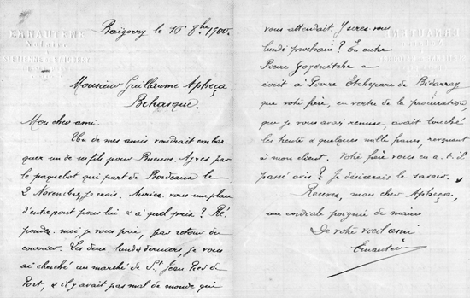 Baïgorry le 16 8bre 1900
Monsieur Guillaume Apheça
Mon cher ami
Un de mes amis voudrait embar
quer un de ses fils pour Buenos Ayres par
le paquebot qui part de Bordeaux le
2 Novembre, je crois. Auriez vous une place
d'entrepont pour lui et à quel prix ? Ré
pondez moi je vous prie, par retour du
courrier. Les deux lundis derniers, je vous
ai cherché au marché de St Jean Pied de
Port, et il y avait pas mal de monde qui
vous attendait. Y serez-vous
lundi prochain ? En outre
Pierre
écrit à Pierre Etchepare de Bidarray
que votre frère, en vertu de la procuration
que je vous avais remise, avait touché
les trente et quelques mille francs, revenant
à mon client. Votre frère vous en a-t-il
passé avis ? Je désirerais le savoir.
Recevez, mon cher Apheça,
une cordiale poignée de main
De votre tout ami